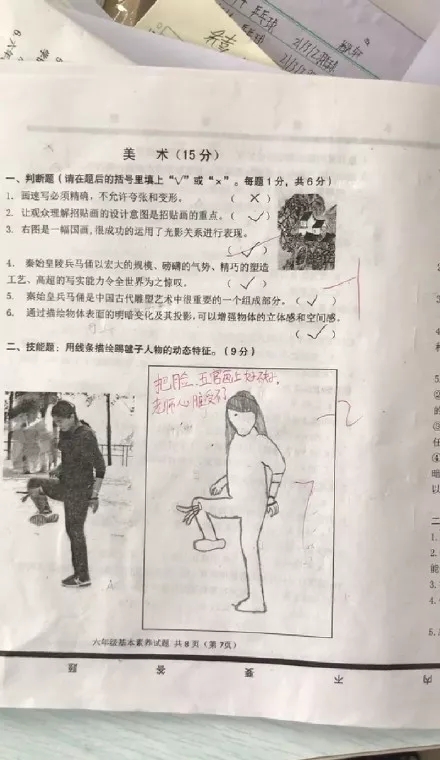 乒乓球
美　术（15分）
一、判断题（请在题后的括号里填上“√”或“×”。每题1分，共6分）
1. 画速写必须精确，不允许夸张和变形。（ × ）
2. 让观众理解招贴画的设计意图是招贴画的重点。（ √ ）
3. 右图是一幅国画，很成功的运用了光影关系进行表现。
（ √ ）
4. 秦始皇陵兵马俑以宏大的规模、磅礴的气势、精巧的塑造
工艺、高超的写实能力令全世界为之惊叹。（ √ ）
5. 秦始皇兵马俑是中国古代雕塑艺术中很重要的一个组成部分。（ √ ）
6. 通过描绘物体表面的明暗变化及其投影，可以增强物体的立体感和空间感。
（ √ ）
二、技能题：用线条描绘踢毽子人物的动态特征。（9分）
把脸、五官画上好不好，
老师心脏受不
-1
-2
7
六年级基本素养试题 共8页（第7页）
题 答 要 不 内